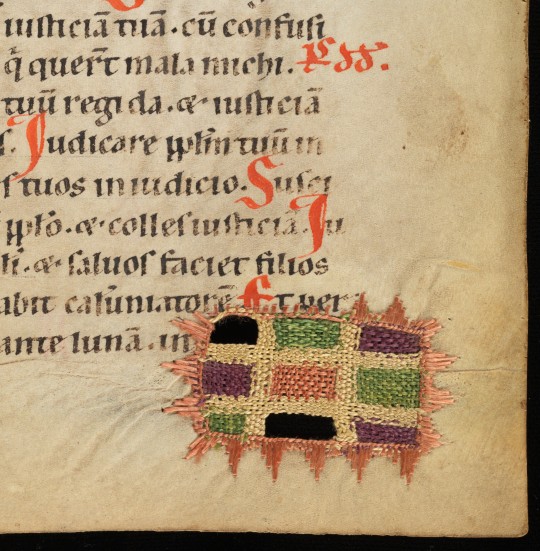 iusticiā tuā. cū confusi
q̄ quer̄t mala michi. Ps
tuū regi da. & iusticiā
s. Judicare pp̄lm tuū in
s tuos in iudicio. Susci
pp̄lo. & colles iusticiā. Ju
li. & saluos faciet filios
abit calūniatorē Et per
ante lunā. in